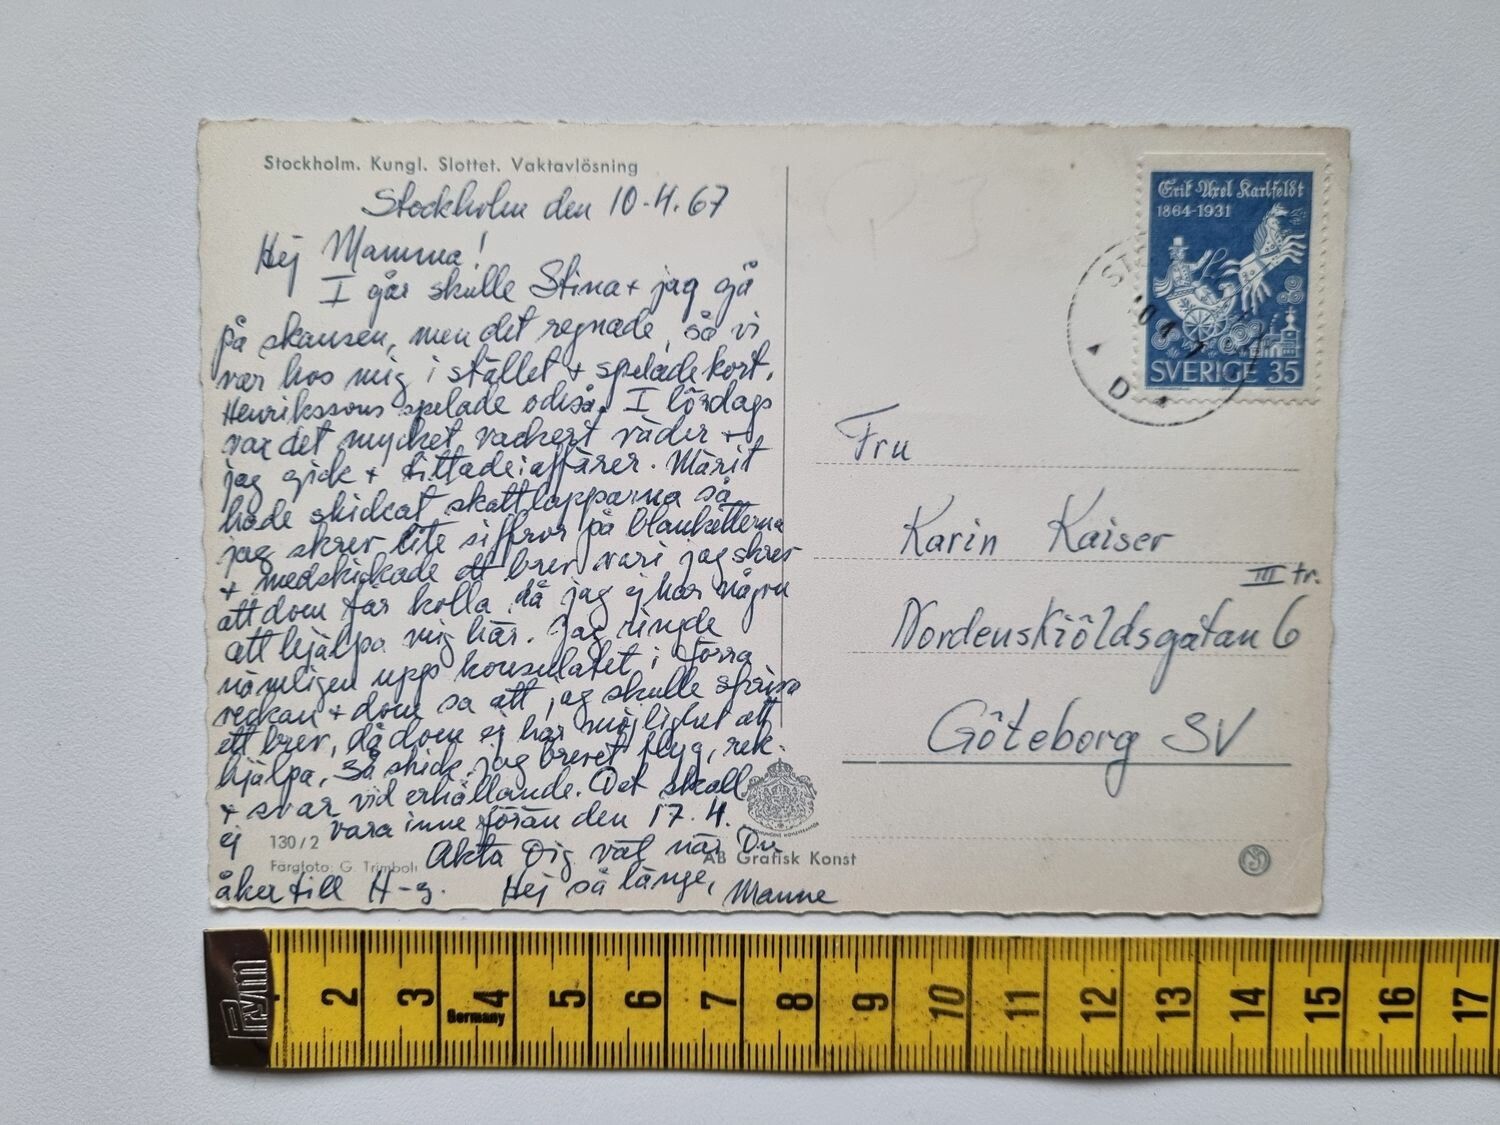 Stockholm. Kungl. Slottet. Vaktavlösning
Stockholm den 10-4.67
Hej Mamma!
I går skulle Stina + jag gå
på skansen, men det regnade, så vi
var hos mig i stället + spelade kort.
Henrikssons spelade också. I lördags
var det mycket vackert väder +
jag gick + tittade i affärer. Märit
hade skickat skattlapparna så
jag skrev lite siffror på blanketterna
+ medskickade ett brev vari jag skrev
att dom får kolla, då jag ej har någon
att hjälpa mig här. Jag ringde
nämligen upp konsulatet i förra
veckan + dom sa att jag skulle skriva
ett brev, då dom ej har möjlighet att
hjälpa. Så skick. jag brevet flyg, rek.
+ svar vid erhållande. Det skall
ej vara inne förän den 17.4.
Akta Dig väl när Du
åker till H-g. Hej så länge, Manne
130/2
Färgfoto: G. Trimboli
AB Grafisk Konst
Erik Axel Karlfeldt
1864-1931
SVERIGE 35
D
Fru
Karin Kaiser
III tr.
Nordenskiöldsgatan 6
Göteborg SV
PYM
2 3 4 5 6 7 8 9 10 11 12 13 14 15 16 17
Germany